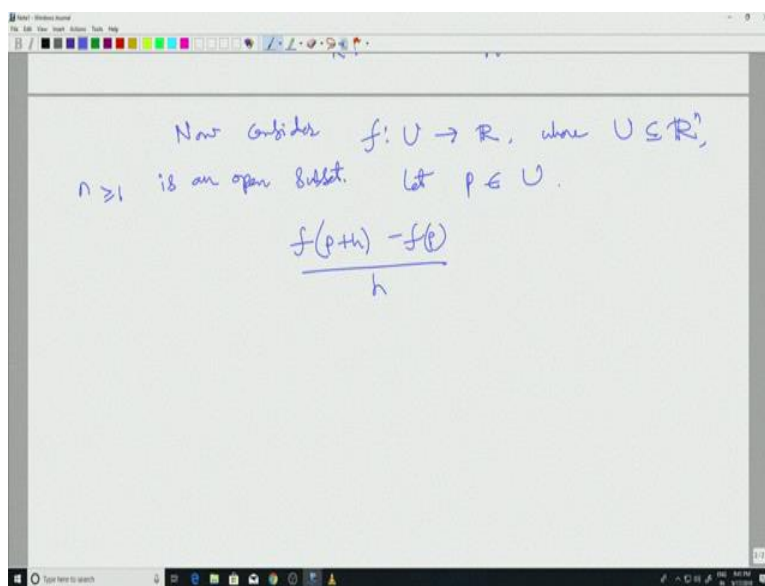 Note1 - Windows Journal
File Edit View Insert Actions Tools Help
Now consider f: U → R, where U ⊆ Rⁿ,
n ≥ 1 is an open subset. Let p ∈ U.
f(p+h) - f(p)
h
Type here to search